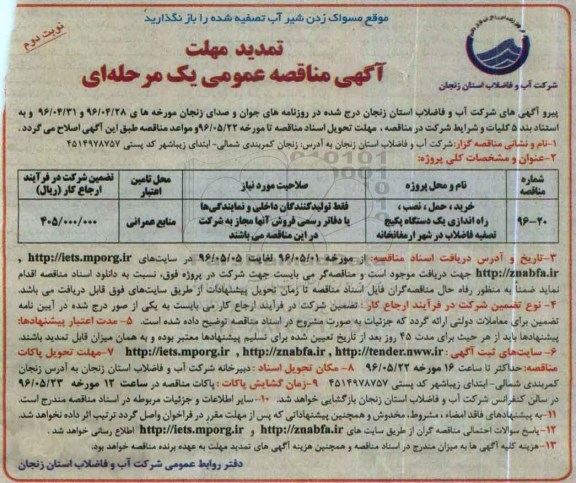 موقع مسواک زدن شیر آب تصفیه شده را باز نگذارید
نوبت دوم
تمدید مهلت
آگهی مناقصه عمومی یک مرحله‌ای
شرکت آب و فاضلاب استان زنجان
پیرو آگهی های شرکت آب و فاضلاب استان زنجان درج شده در روزنامه های جوان و صدای زنجان مورخه ها ی ۹۶/۰۴/۲۸ و ۹۶/۰۴/۳۱ و به
استناد بند ۵ کلیات و شرایط شرکت در مناقصه ، مهلت تحویل اسناد مناقصه تا مورخه ۹۶/۰۵/۲۲ و مواعد مناقصه طبق این آگهی اصلاح می گردد .
۱-نام و نشانی مناقصه گزار: شرکت آب و فاضلاب استان زنجان به آدرس: زنجان کمربندی شمالی- ابتدای زیباشهر کد پستی ۴۵۱۴۹۷۸۷۵۷
۲-عنوان و مشخصات کلی پروژه:
شماره مناقصه
نام و محل پروژه
صلاحیت مورد نیاز
محل تامین اعتبار
تضمین شرکت در فرآیند ارجاع کار (ریال)
۹۶-۲۰
خرید ، حمل ، نصب ،
راه اندازی یک دستگاه پکیج
تصفیه فاضلاب در شهر ارمغانخانه
فقط تولیدکنندگان داخلی و نمایندگی‌ها
یا دفاتر رسمی فروش آنها مجاز به شرکت
در این مناقصه می باشند
منابع عمرانی
۴۰۵/۰۰۰/۰۰۰
۳-تاریخ و آدرس دریافت اسناد مناقصه: از مورخه ۹۶/۰۵/۰۱ لغایت ۹۶/۰۵/۰۵ در سایت‌های http://iets.mporg.ir ,
http://znabfa.ir جهت دریافت موجود است و مناقصه‌گر می بایست جهت شرکت در پروژه فوق، نسبت به دانلود اسناد مناقصه اقدام
نماید ضمناً به منظور رفاه حال مناقصه‌گران فایل اسناد مناقصه تا زمان تحویل پیشنهادات از طریق سایت‌های فوق قابل دریافت می باشد.
۴- نوع تضمین شرکت در فرآیند ارجاع کار : تضمین شرکت در فرآیند ارجاع کار می بایست به یکی از صور درج شده در آیین نامه
تضمین برای معاملات دولتی ارائه گردد که جزئیات به صورت مشروح در اسناد مناقصه توضیح داده شده است. ۵-مدت اعتبار پیشنهادها:
پیشنهادها باید از هر حیث برای مدت ۴۵ روز بعد از تاریخ تعیین شده برای تسلیم پیشنهادها معتبر بوده و به همان میزان قابل تمدید باشند.
۶- سایت‌های ثبت آگهی : http://iets.mporg.ir , http://znabfa.ir , http://tender.nww.ir ۷-مهلت تحویل پاکات
مناقصه:حداکثر تا ساعت ۱۶ مورخه ۹۶/۰۵/۲۲ ۸- مکان تحویل اسناد : دبیرخانه شرکت آب و فاضلاب استان زنجان به آدرس زنجان
کمربندی شمالی- ابتدای زیباشهر کد پستی ۴۵۱۴۹۷۸۷۵۷ ۹-زمان گشایش پاکات : پاکات مناقصه در ساعت ۱۲ مورخه ۹۶/۰۵/۲۳
در سالن کنفرانس شرکت آب و فاضلاب استان زنجان بازگشایی خواهد شد. ۱۰- سایر اطلاعات و جزئیات مربوطه در اسناد مناقصه مندرج است.
۱۱-به پیشنهادهای فاقد امضاء ، مشروط، مخدوش و همچنین پیشنهاداتی که پس از مهلت مقرر در فراخوان واصل گردد ترتیب اثر داده نخواهد شد.
۱۲-پاسخ سوالات احتمالی مناقصه گران از طریق سایت های http://iets.mporg.ir , http://znabfa.ir اطلاع رسانی خواهد شد .
۱۳-هزینه کلیه آگهی ها به میزان مندرج در اسناد مناقصه و همچنین هزینه آگهی های تمدید مهلت به عهده برنده مناقصه خواهد بود.
دفتر روابط عمومی شرکت آب و فاضلاب استان زنجان